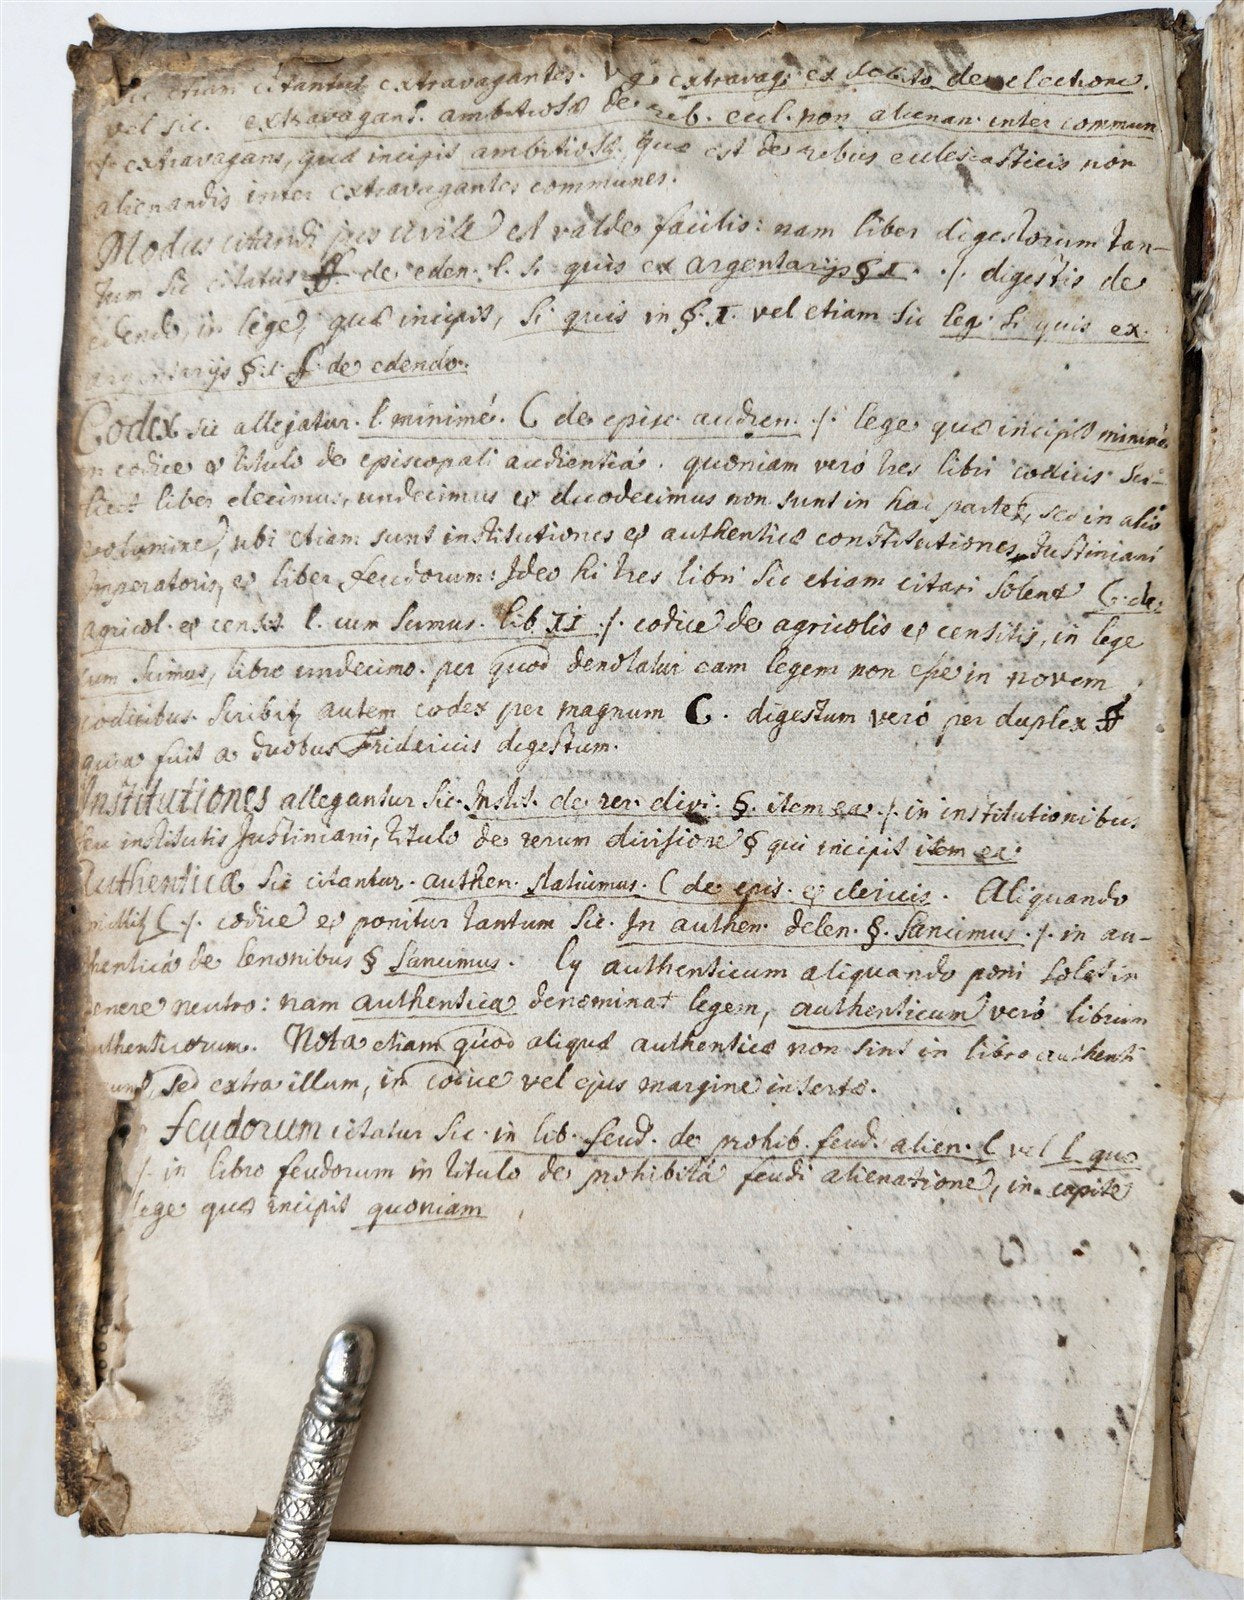 etiam citantur extravagantes. Vg. extravag. ex debito de electione.
vel sic. extravagans. ambitiosæ de reb. eccl. non alienan. inter commun
./. extravagans, quæ incipit ambitiosæ, quæ est de rebus eclesiasticis non
alienandis inter extravagantes communes.
Modus citandi jus civile est valde facilis: nam liber digestorum tan-
tum sic citatur ff. de eden. l. si quis ex argentarijs § I. ./. digestis de
edendo, in lege, quæ incipit, si quis in §. I. vel etiam sic leg. si quis ex
argentarijs § I. ff. de edendo.
Codex sic allegatur. l. minimé. C de episc. audien. ./. lege quæ incipit minimé
in codice et titulo de episcopali audientiá. quoniam veró tres libri codicis sci-
licet liber decimus, undecimus et duodecimus non sunt in hac parte, sed in alio
volumine, ubi etiam sunt institutiones et authenticæ constitutiones Justiniani
Imperatoris, et liber feudorum: Ideo hi tres libri sic etiam citari solent C. de
agricol. et censit. l. cum scimus. lib. II ./. codice de agricolis et censitis, in lege
cum scimus, libro undecimo. per quod denotatur eam legem non esse in novem
codicibus. scribitz autem codex per magnum C. digestum veró per duplex ff
quia fuit a duobus Fridericis digestum.
Institutiones allegantur sic. Instit. de rer. divi. §. item ea ./. in institutionibus
seu institutis Justiniani, titulo de rerum divisione § qui incipit item ea.
Authenticæ sic citantur. authen. statuimus. C de epis. et clericis. Aliquando
C ./. codice et ponitur tantum sic. In authen. delen. §. sancimus. ./. in au-
thenticá de lenonibus § sancimus. ly authenticum aliquando poni solet in
genere neutro: nam authentica denominat legem, authenticum veró librum
authenticorum. Nota etiam quod aliquæ authenticæ non sint in libro authenti
sed extra illum, in codice vel ejus margine insertæ.
feudorum citatur sic. in lib. feud. de prohib. feud. alien. C vel l. quo
./. in libro feudorum in titulo de prohibitá feudi alienatione, in capite
lege quæ incipit quoniam